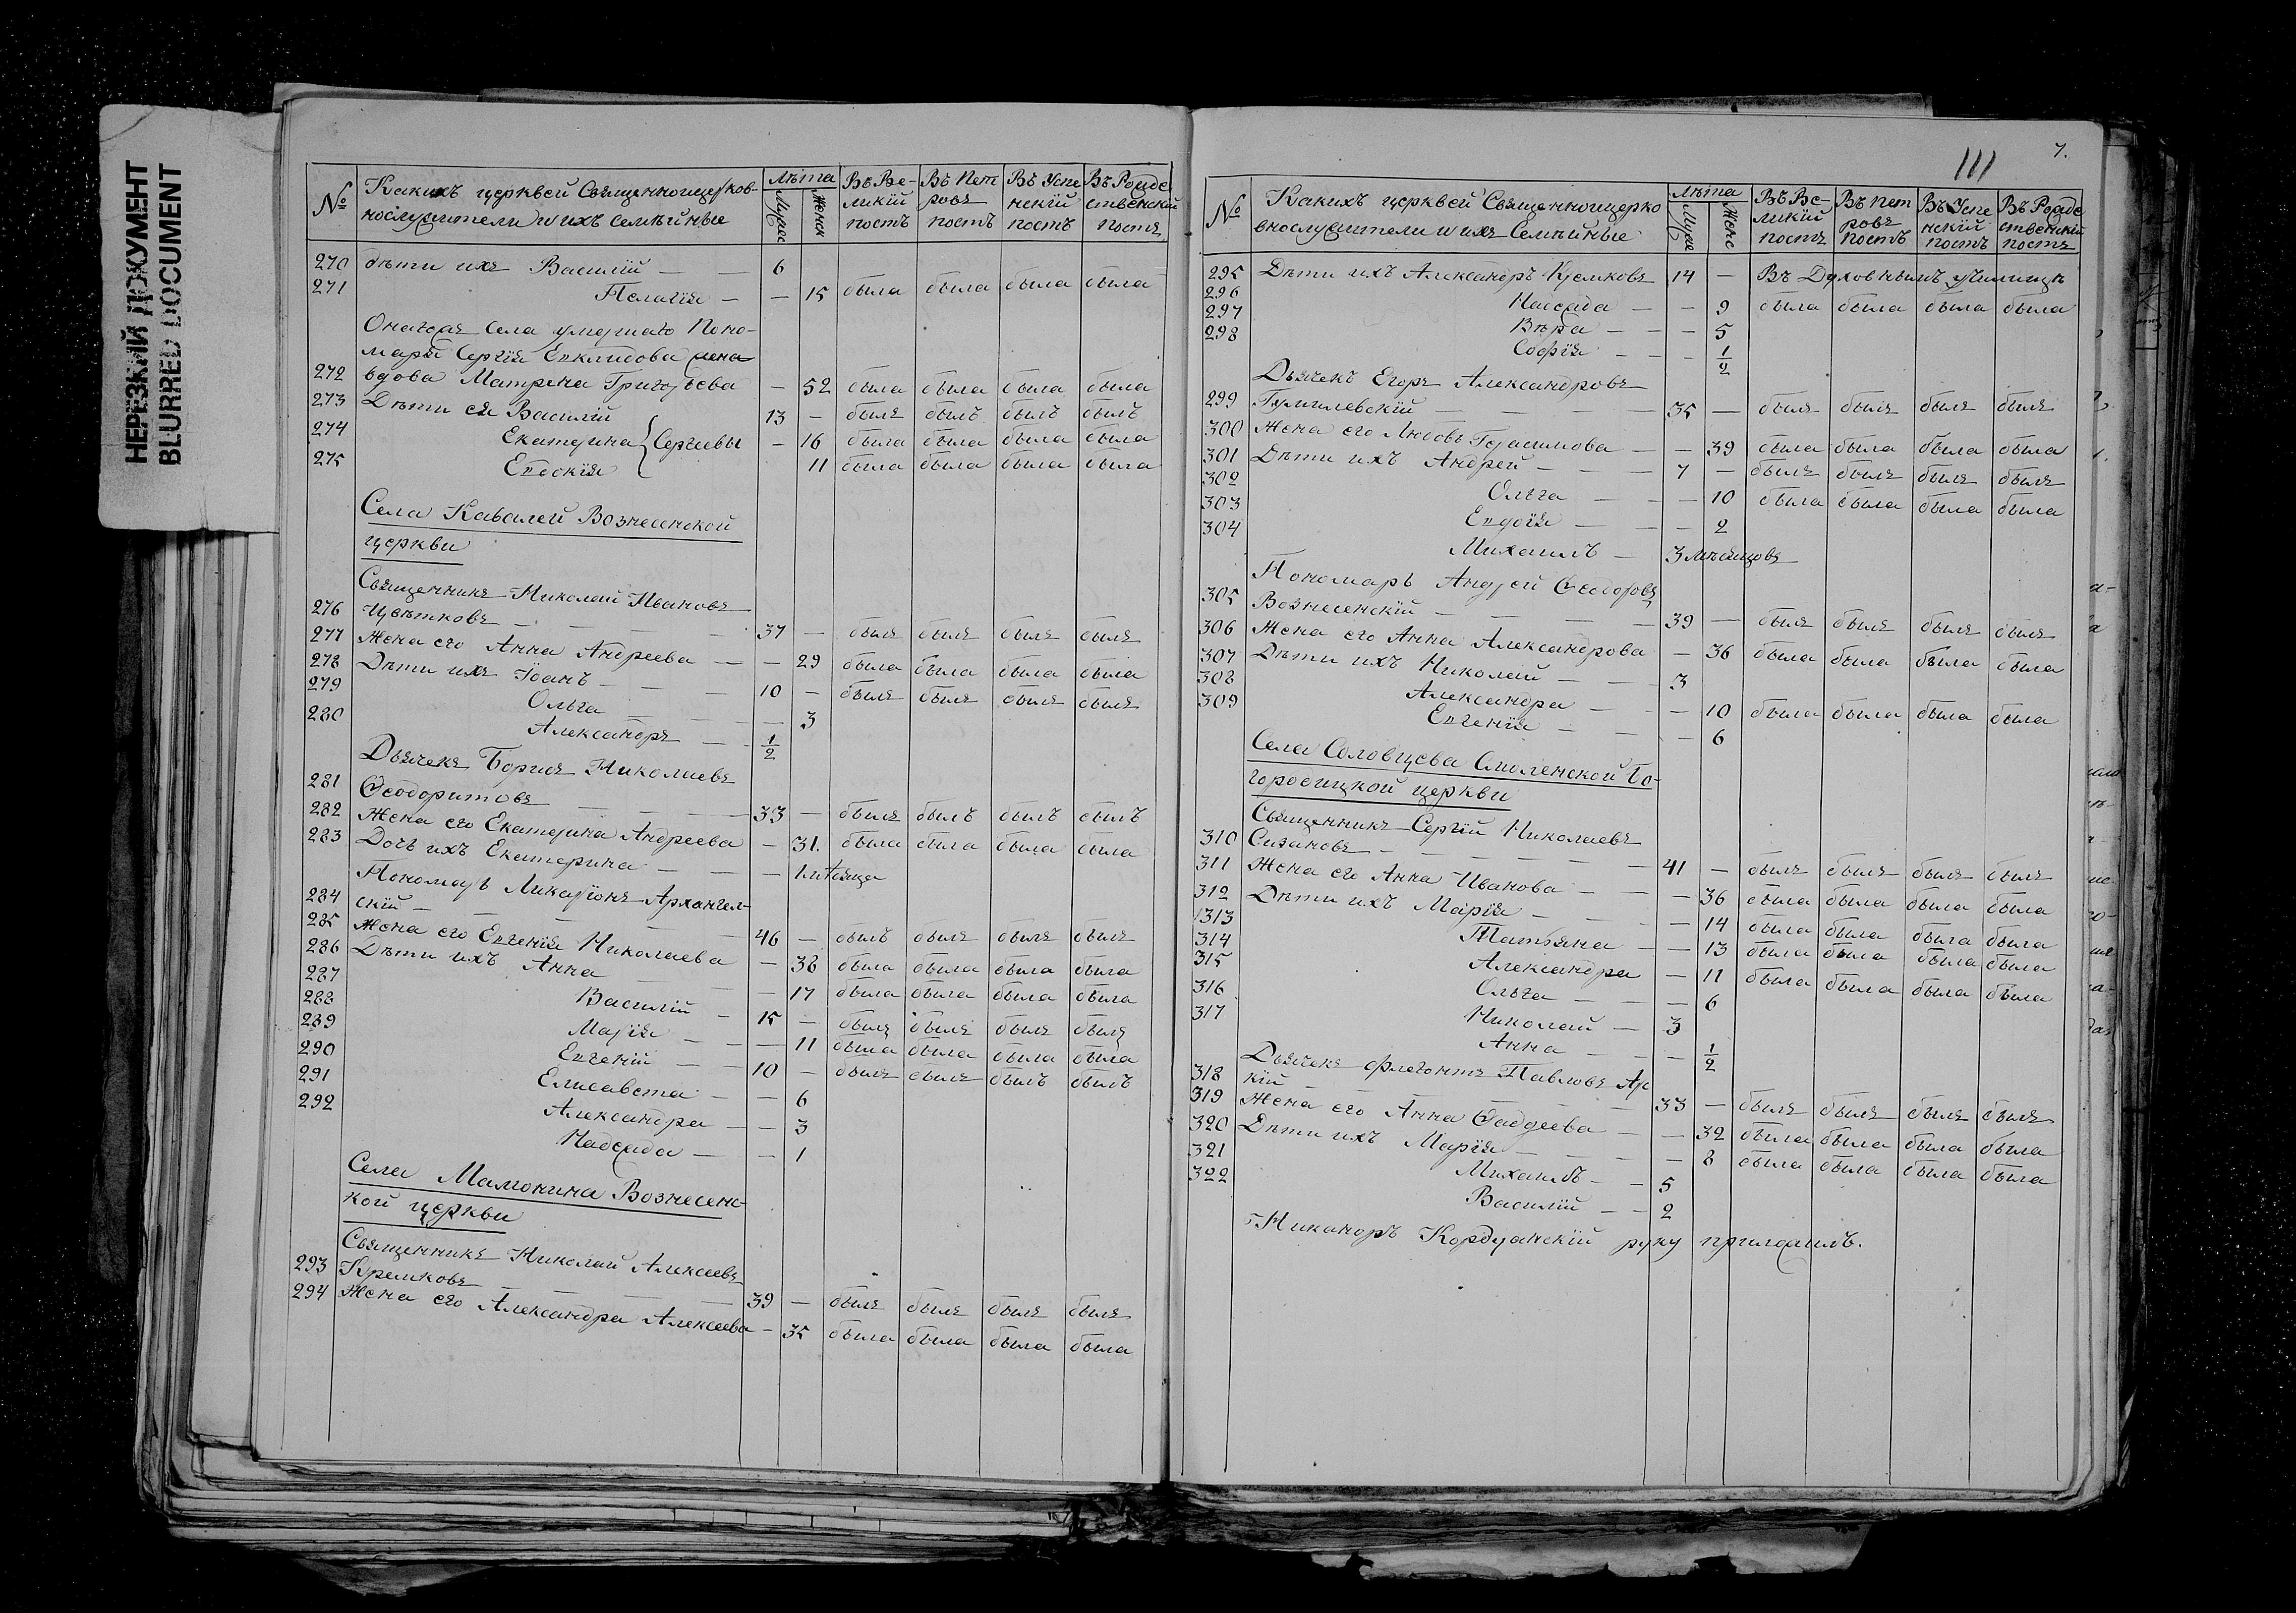 НЕРЕЗКИЙ ДОКУМЕНТ
BLURRED DOCUMENT
№ Какихъ церквей Священноицерков- Лѣта Въ Ве- Въ Пет Въ Успе Въ Рожде
нослужители и ихъ семѣйные Мужес Женск ликій ровъ нскій ственскій
постъ постъ постъ постъ
270 дѣти ихъ Василій — — 6
271 Пелагія — — 15 была была была была
Онагоже Села умершаго Поно-
маря Сергія Евклидова жена
272 вдова Матрена Григорьева — 52 была была была была
273 Дѣти ея Василій 13 — былъ былъ былъ былъ
274 Екатерина } Сергеевы — 16 была была была была
275 Евдокія 11 была была была была
Села Кавалей Вознесенской
церкви
Священникъ Николай Ивановъ
276 Цвѣтковъ — — — 37 — былъ былъ былъ былъ
277 Жена его Анна Андреева — — 29 была была была была
278 Дѣти ихъ Іоанъ — — — 10 — былъ былъ былъ былъ
279 Ольга — — — 3
280 Александръ — — 1/2
Дьячекъ Борисъ Николаевъ
281 Ѳеодоритовъ — — — 33 — былъ былъ былъ былъ
282 Жена его Екатерина Андреева — 31. была была была была
283 Дочь ихъ Екатерина — — — 1 мѣсяца
Пономарь Макаріонъ Архангел-
284 скій — — — — 46 — былъ былъ былъ былъ
285 Жена его Евгенія Николаева — 38 была была была была
286 Дѣти ихъ Анна — — 17 была была была была
287 Василій — 15 — былъ былъ былъ былъ
288 Марія — — — 11 была была была была
289 Евгеній — — 10 — былъ былъ былъ былъ
290 Елисавета — — 6
291 Александра — — 3
292 Надежда — — 1
Села Мамонина Вознесенс-
кой церкви
Священникъ Николай Алексеевъ
293 Кремковъ — — — 39 — былъ былъ былъ былъ
294 Жена его Александра Алексеева — 35 была была была была
111 7.
№ Какихъ церквей Священноицерко Лѣта Въ Ве- Въ Пет Въ Успе Въ Рожде
внослужители и ихъ Семѣйные Муже Женс ликій ровъ нскій ственскій
постъ постъ постъ постъ
295 Дѣти ихъ Александръ Кремковъ 14 — Въ Духовныхъ училищѣ
296 Надежда — — 9 была была была была
297 Вѣра — — — 5
298 Софія — — — 1/2
Дьячекъ Егоръ Александровъ
299 — — 35 — былъ былъ былъ былъ
300 Жена его Любовь Герасимова — — 39 была была была была
301 Дѣти ихъ Андрей — — — 7 — былъ былъ былъ былъ
302 Ольга — — — 10 была была была была
303 Евдокія — — — 2
304 Михаилъ — 3 мѣсяцовъ
Пономарь Андрей Ѳеодоровъ
305 Вознесенскій — — — 39 — былъ былъ былъ былъ
306 Жена его Анна Александрова — 36 была была была была
307 Дѣти ихъ Николай — — — 3
308 Александра — — — 10 была была была была
309 Евгенія — — — 6
Села Соловцева Смоленской Бо-
городицкой церкви
Священникъ Сергій Николаевъ
310 Сизановъ — — — — 41 — былъ былъ былъ былъ
311 Жена его Анна Иванова — — — 36 была была была была
312 Дѣти ихъ Марія — — — — 14 была была была была
313 Татьяна — — 13 была была была была
314 Александра — 11 была была была была
315 Ольга — — — 6
316 Николай — 3
317 Анна — — — 1/2
Дьячекъ Флегонтъ Павловъ Ар
318 кій — — — — 33 — былъ былъ былъ былъ
319 Жена его Анна Ѳаддеева — — 32 была была была была
320 Дѣти ихъ Марія — — — — 8 была была была была
321 Михаилъ — — 5
322 Василій — — 2
Никаноръ Кордуанскій руку приложилъ.